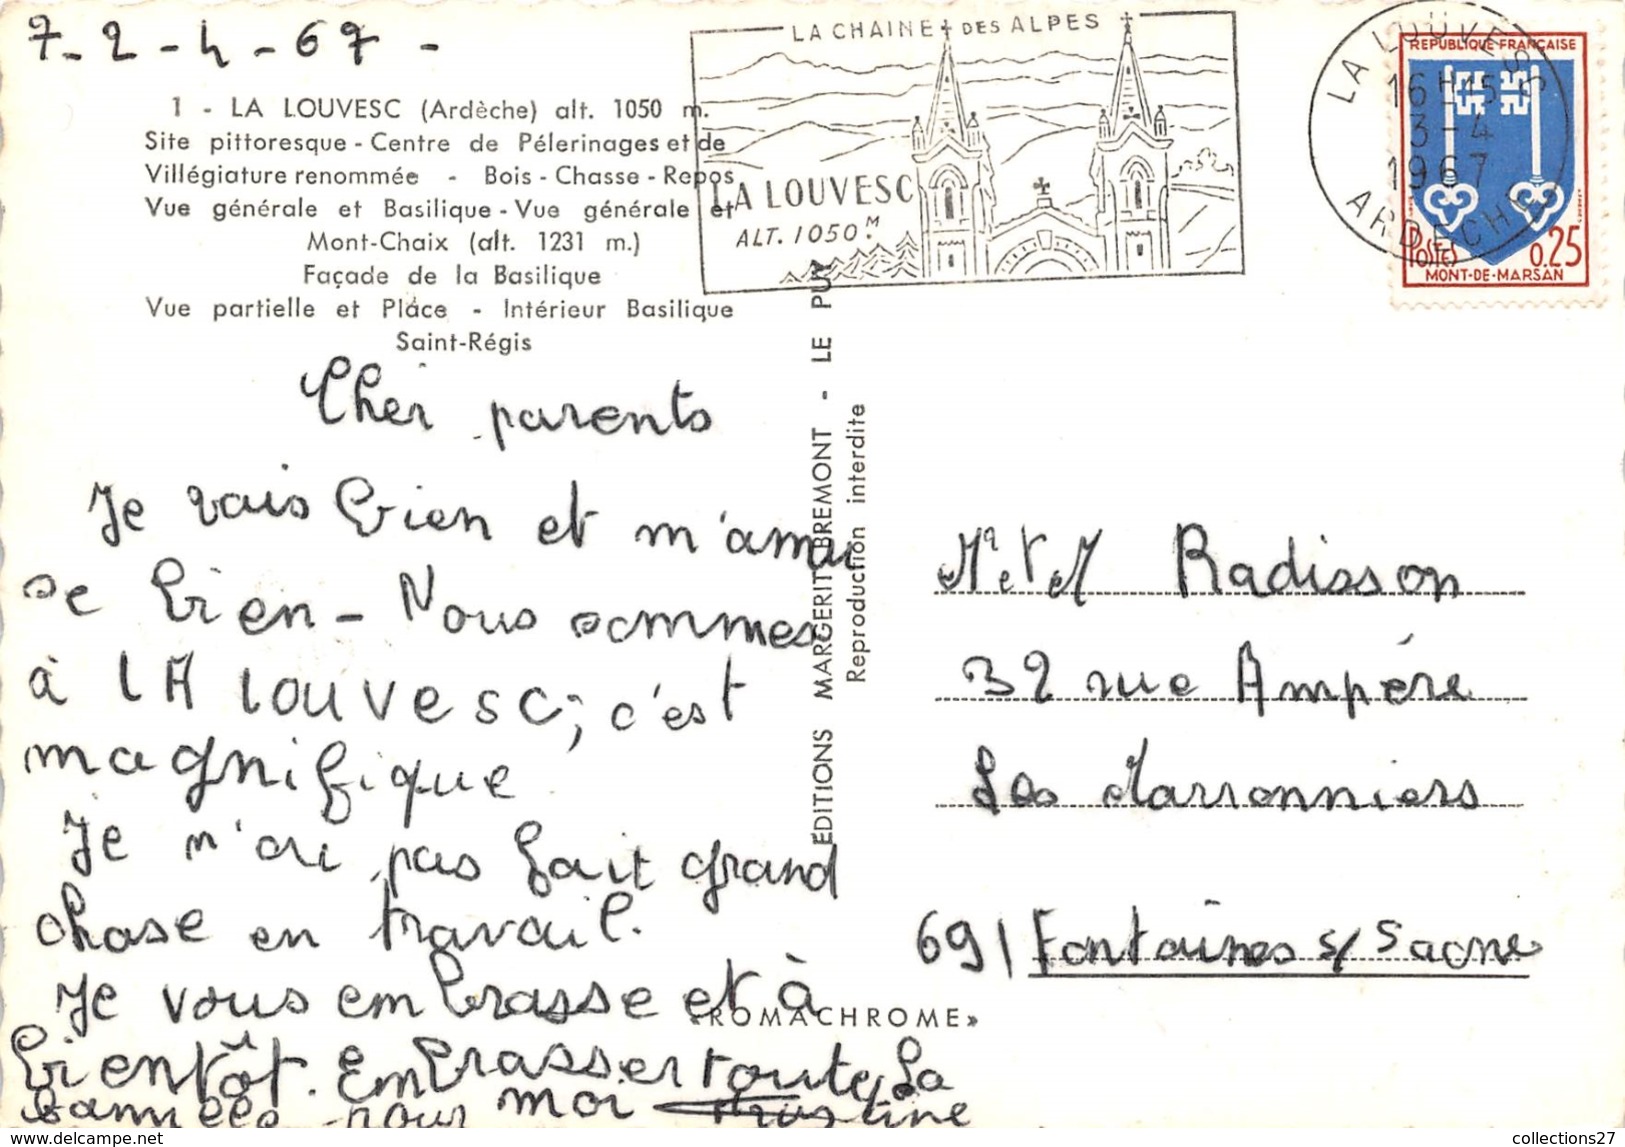 7-2-4-67-
1 - LA LOUVESC (Ardèche) alt. 1050 m.
Site pittoresque - Centre de Pélerinages et de
Villégiature renommée - Bois - Chasse - Repos
Vue générale et Basilique - Vue générale et
Mont-Chaix (alt. 1231 m.)
Façade de la Basilique
Vue partielle et Place - Intérieur Basilique
Saint-Régis
LA CHAINE DES ALPES
LA LOUVESC
ALT. 1050 M.
LA LOUVESC
16H15
3-4
1967
ARDECHE
REPUBLIQUE FRANÇAISE
POSTES
0,25
MONT-DE-MARSAN
Cher parents
Je vais bien et m'amu
se bien - Nous sommes
à LA LOUVESC; c'est
magnifique
Je n'ai pas fait grand
chose en travail.
Je vous embrasse et à
bientôt. Embrasser toute la
moi
EDITIONS MARGERIT-BREMONT - LE PUY
Reproduction interdite
«ROMACHROME»
Mr et M Radisson
32 rue Ampére
Les Marronniers
69 | Fontaines s/ Saone
collections27